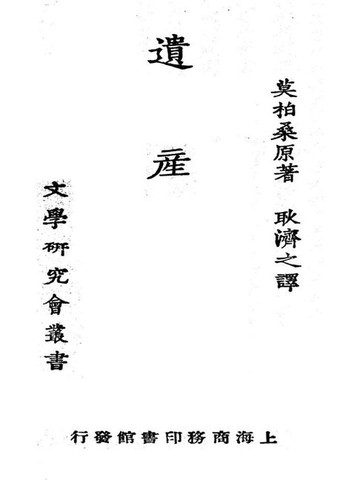 莫柏桑原著 耿濟之譯
遺產
文學研究會叢書
上海商務印書館發行